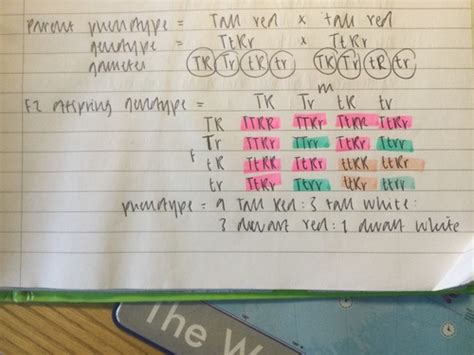 Parent phenotype = Tall red x tall red
genotype = TtRr x TtRr
gametes TR Tr tR tr TR Tr tR tr
m
F2 offspring genotype = TR Tr tR tr
TR TTRR TTRr TtRR TtRr
Tr TTRr TTrr TtRr Ttrr
f
tR TtRR TtRr ttRR ttRr
tr TtRr Ttrr ttRr ttrr
phenotype = 9 tall red : 3 tall white :
3 dwarf red : 1 dwarf white
The W